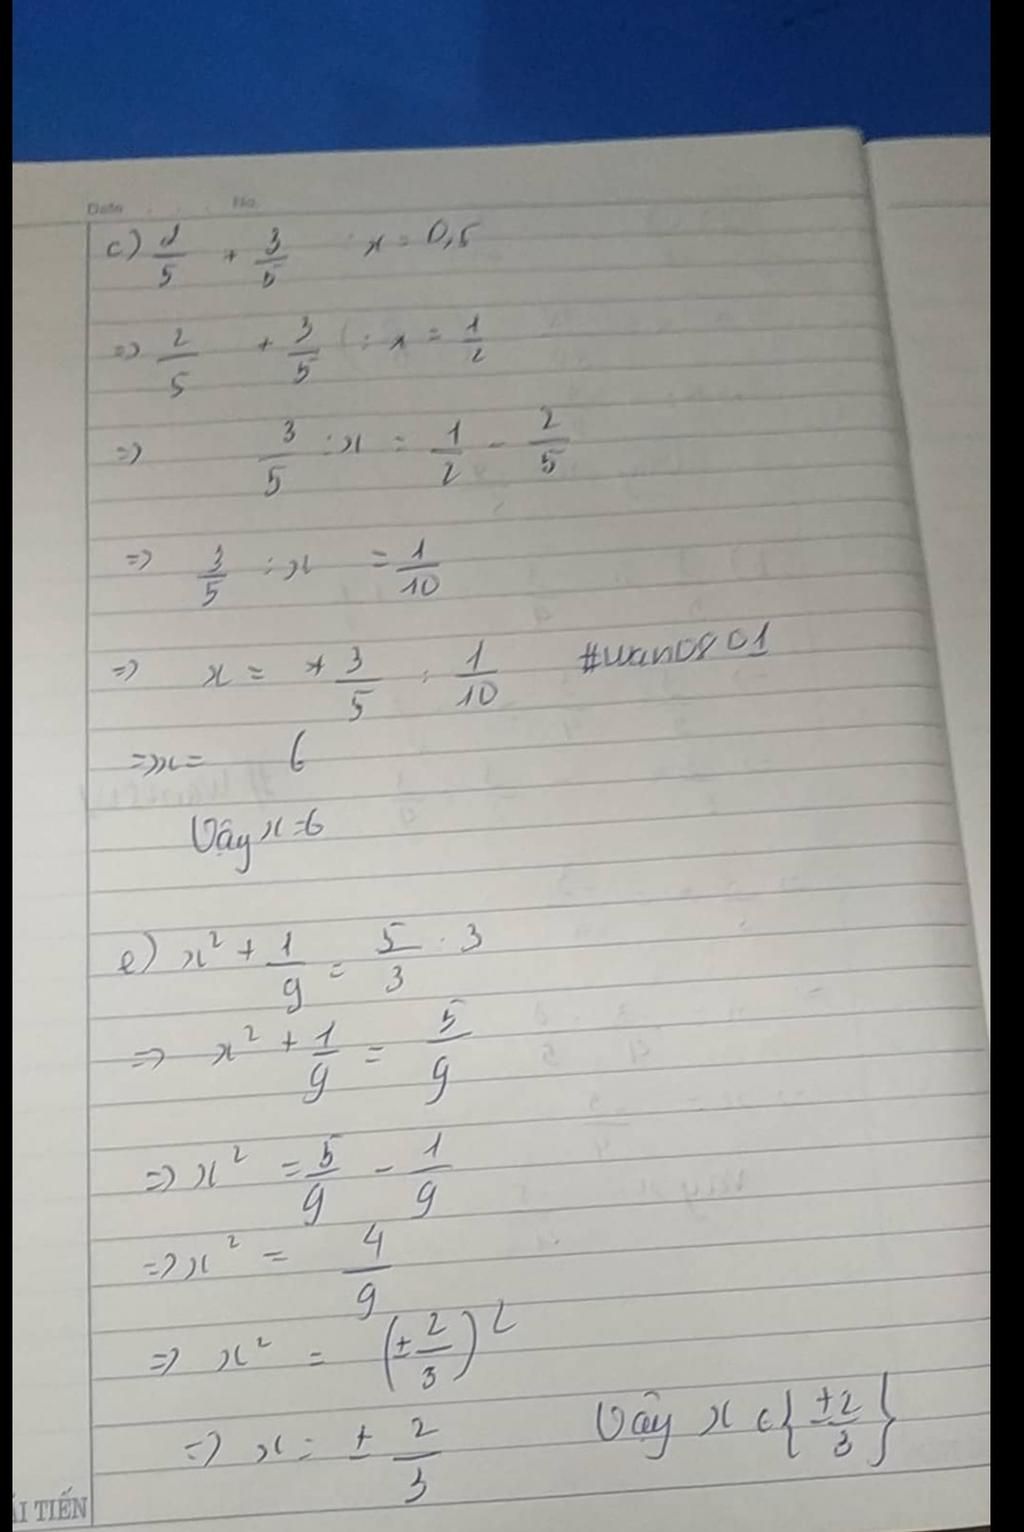 Date No.
c) 2/5 + 3/5 : x = 0,5
=> 2/5 + 3/5 : x = 1/2
=> 3/5 : x = 1/2 - 2/5
=> 3/5 : x = 1/10
=> x = 3/5 : 1/10
=> x = 6
Vậy x = 6
e) x² + 1/9 = 5/3 : 3
=> x² + 1/9 = 5/9
=> x² = 5/9 - 1/9
=> x² = 4/9
=> x² = (± 2/3)²
=> x = ± 2/3 Vậy x ∈ {±2/3}
TIẾN